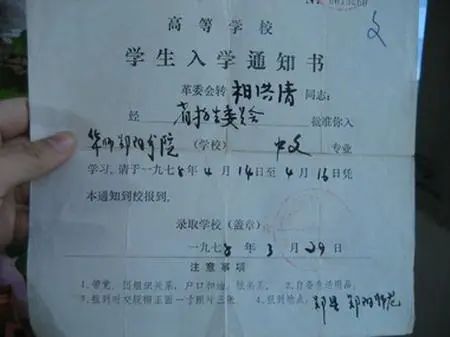 高等学校
学生入学通知书
革委会转 相洪清 同志：
经 省招生委员会 批准你入
华师郧阳分院 （学校） 中文 专业
学习，请于一九七8年4月14日至4月16日凭
本通知到校报到。
录取学校（盖章）
一九七8年3月29日
注意事项
1.带党、团组织关系，户口和油、粮关系， 2.自备生活用品；
3.报到时交脱帽正面一寸照片三张， 4.报到地点：郧县 郧阳师范